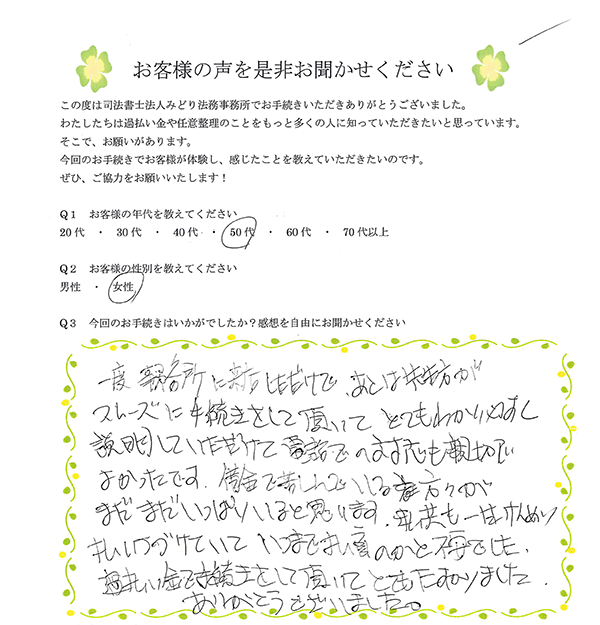 お客様の声を是非お聞かせください
この度は司法書士法人みどり法務事務所でお手続きいただきありがとうございました。
わたしたちは過払い金や任意整理のことをもっと多くの人に知っていただきたいと思っています。
そこで、お願いがあります。
今回のお手続きでお客様が体験し、感じたことを教えていただきたいのです。
ぜひ、ご協力をお願いいたします！
Q1 お客様の年代を教えてください
20代 ・ 30代 ・ 40代 ・ 50代 ・ 60代 ・ 70代以上
Q2 お客様の性別を教えてください
男性 ・ 女性
Q3 今回のお手続きはいかがでしたか？感想を自由にお聞かせください
一度 に だけで、あとは
スムーズに手続きをして頂いて とてもわかりやすく
説明していただけて 電話での も親切で
よかったです. 借金で苦しんでいる方々が
まだまだいっぱいいると思います. 私共も
払いつづけていて いつまで のかと不安でした.
過払い金で手続きをして頂いて とてもたすかりました.
ありがとうございました。